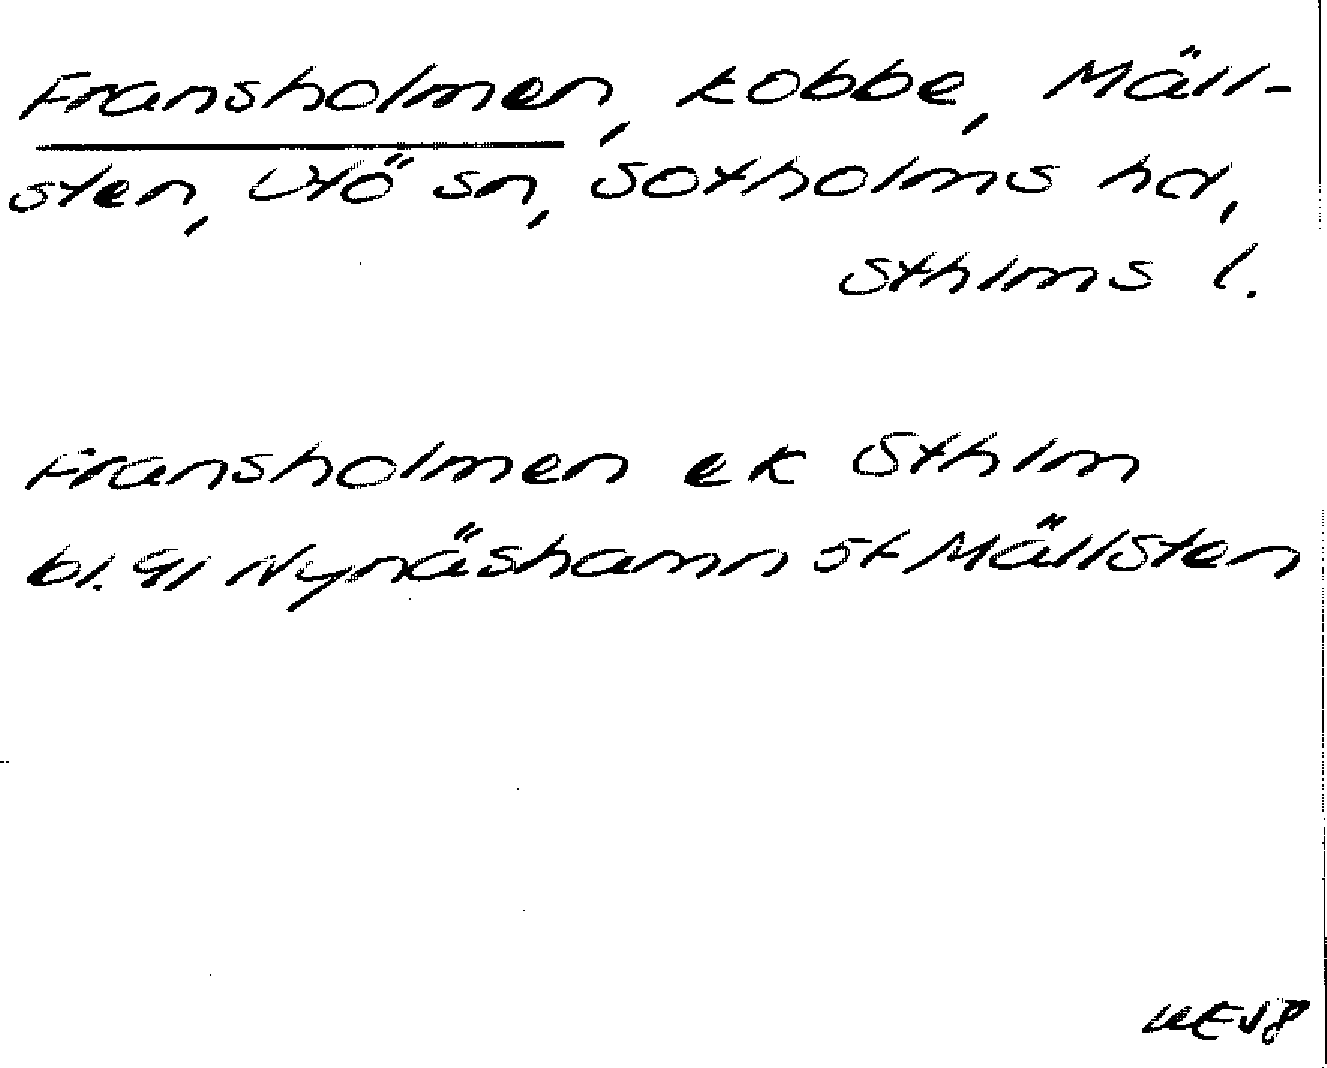 Fransholmen, kobbe, Mäll-
sten, Utö sn, Sotholms hd,
Sthlms l.
Fransholmen ek Sthlm
bl. 91 Nynäshamn st Mällsten